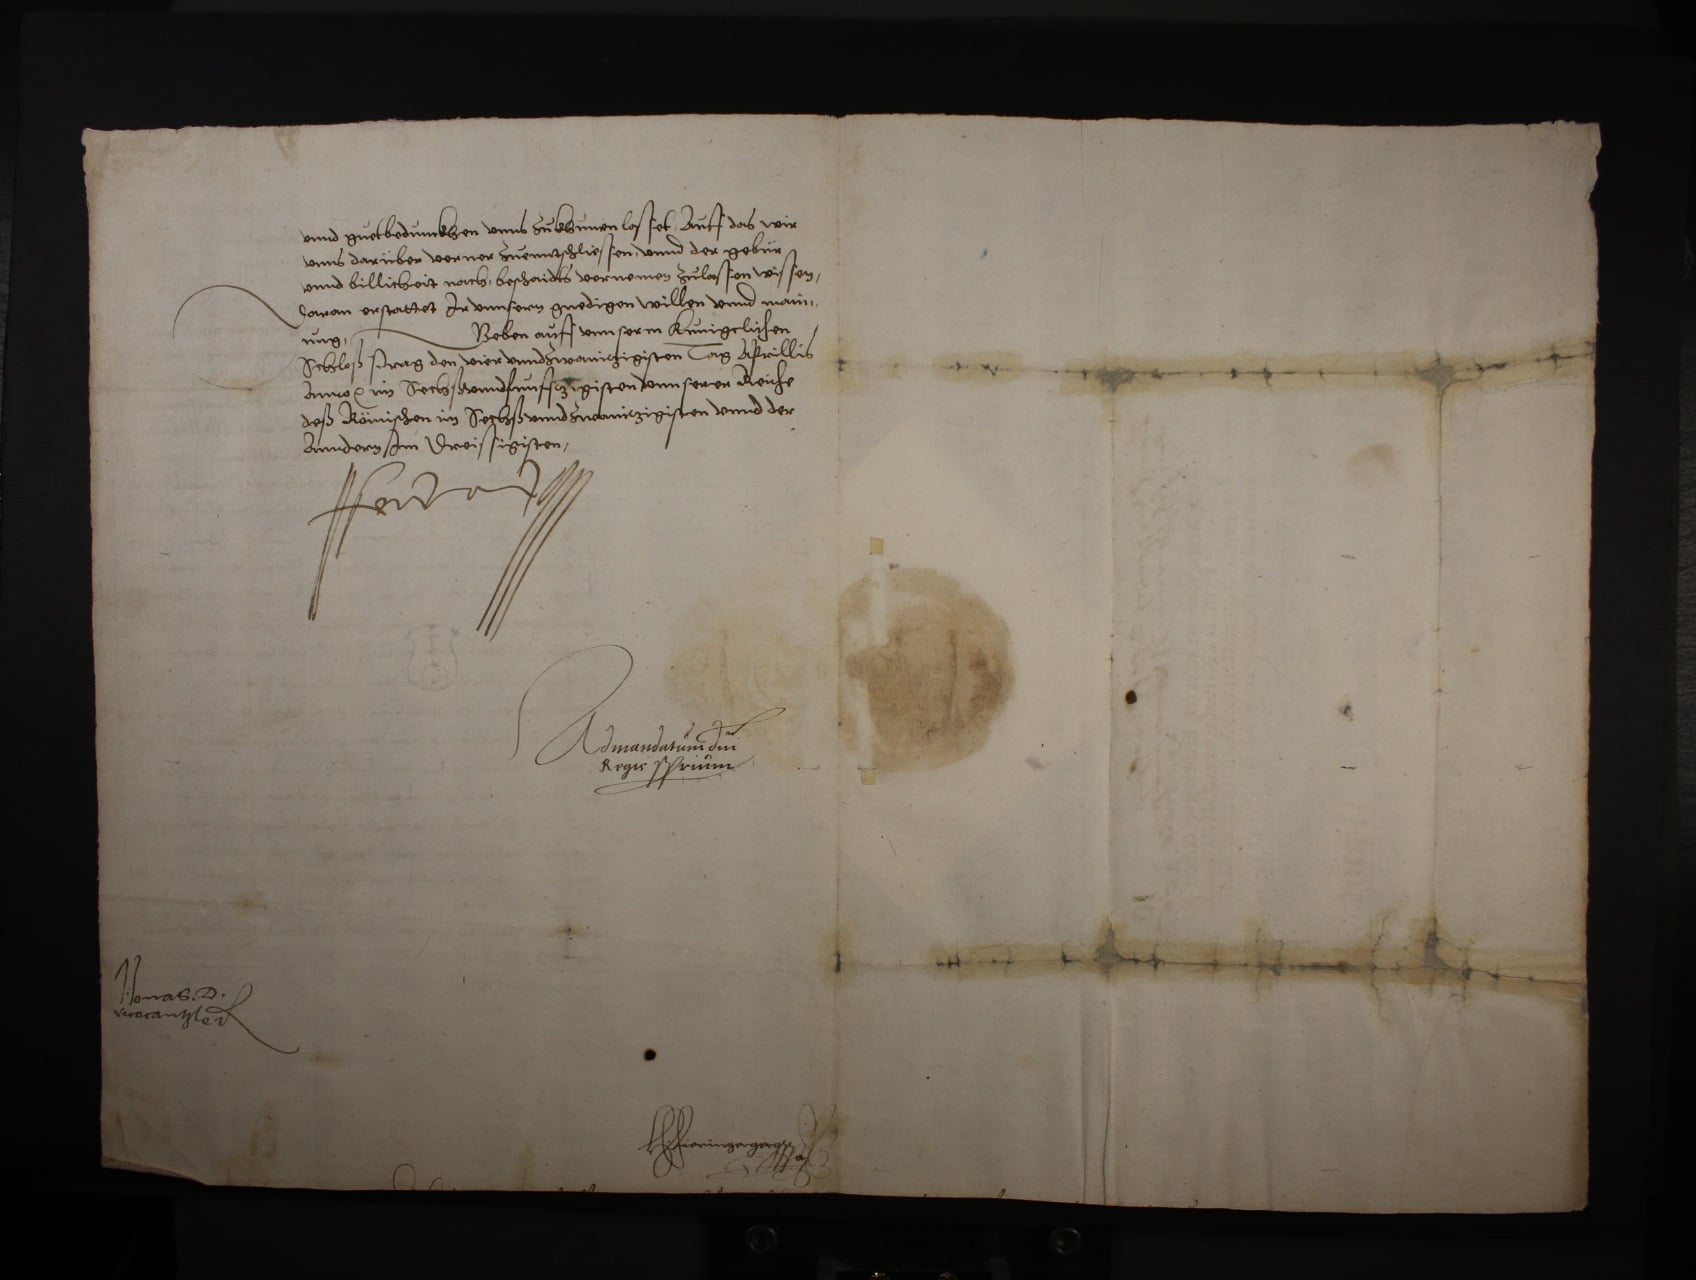 vnnd guetbedunckhen vnns zukhumen lasset, Auff das wir
vnns darüber verner zuenntschliessen, vnnd der gebür
vnnd billicheit nach, beschaidts vernemen zulassen wissen,
daran erstattet Ir vnnsern gnedigen willen vnnd main,,
ung, Geben auff vnnserm Kunigclichen
Schloß Prag den vier vnndzwainzigisten Tag Aprillis
Anno im Sechßvnndfunffzigisten vnnserer Reiche
deß Römischen im Sechßvnndzwainzigisten vnnd der
Anndern Im Dreissigisten,
Ferdinand
Admandatum dni
Regis pprium
Jonas. D.
vicecantzler